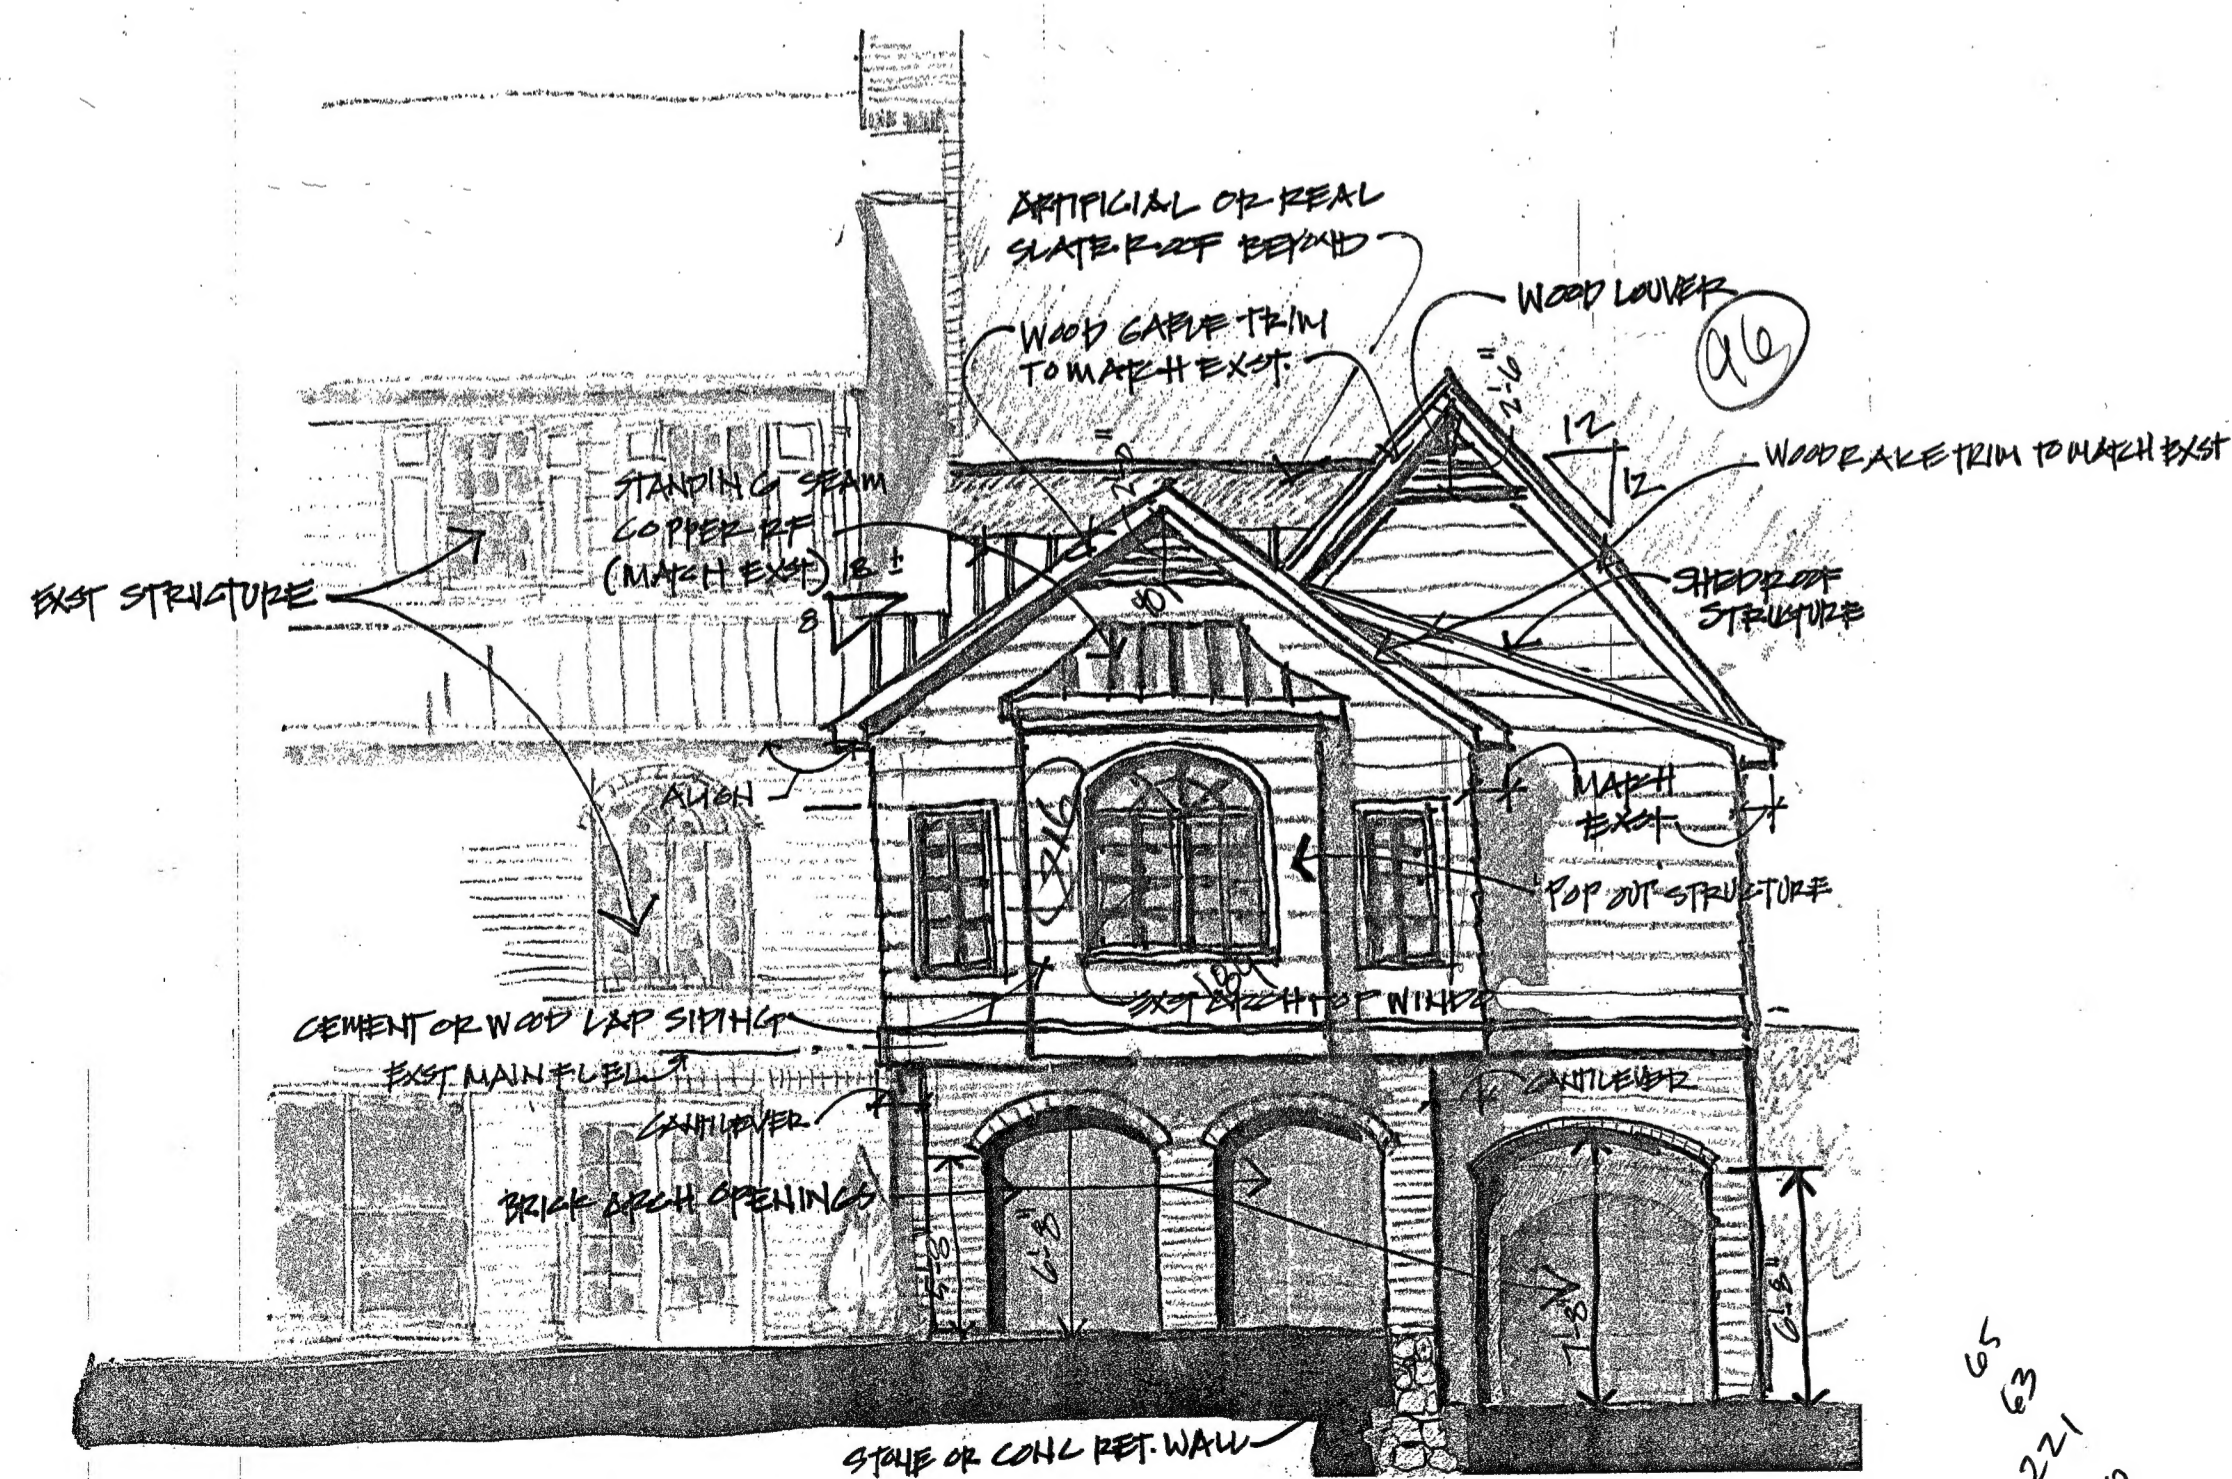 ARTIFICIAL OR REAL
SLATE ROOF BEYOND
WOOD LOUVER
WOOD GABLE TRIM
TO MATCH EXST.
96
2'-6"
12
12
WOOD RAKE TRIM TO MATCH EXST
STANDING SEAM
COPPER RF
(MATCH EXST)
12 ±
8
EXST STRUCTURE
SHED ROOF
STRUCTURE
ALIGN
MATCH
EXST
POP OUT STRUCTURE
184
EXST ARCH TOP WINDO
CEMENT OR WOOD LAP SIDING
EXST MAIN FL EL
CANTILEVER
CANTILEVER
BRICK ARCH OPENINGS
5'-8"
6'-8"
7'-8"
6'-8"
STONE OR CONC RET. WALL
65
63
221